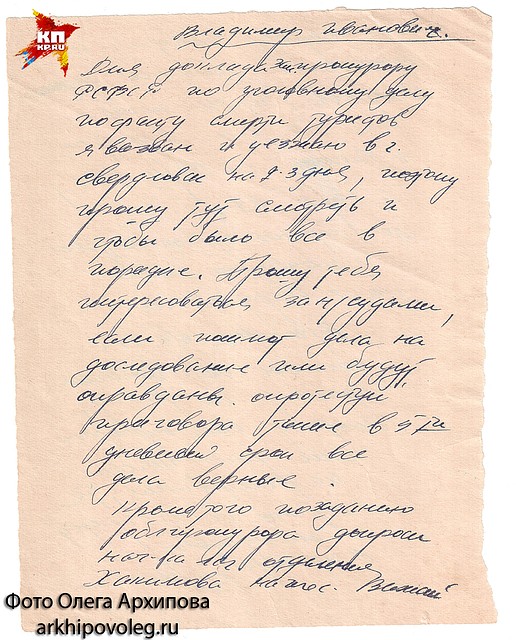 КП
KP.RU
Владимир Иванович.
Для доклада зам. прокурору
РСФСР по уголовному делу
по факту смерти туристов
я вызван и уезжаю в г.
Свердловск на 2-3 дня, поэтому
прошу тут смотреть и
чтобы было все в
порядке. Прошу тебя
интересоваться за н/судами,
если пошлют дела на
доследование или будут
оправданы. опротестуй
приговора также в 5ти
дневный срок все
дела верные.
Кроме того по заданию
облпрокурора допроси
нач-ка отделения
Хакимова на пос. Вижай
Фото Олега Архипова
arkhipovoleg.ru